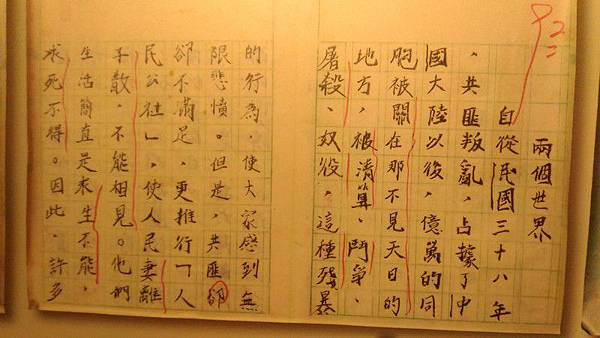 92
兩個世界
自從民國三十八年
、共匪叛亂,占據了中
國大陸以後,億萬的同
胞被關在那不見天日的
地方,被清算、鬥爭、
屠殺、奴役,這種殘暴
的行為,使大家感到無
限悲憤。但是,共匪卻
卻不滿足,更推行「人
民公社」,使人民妻離
子散,不能相見。他們
生活簡直是求生不能,
求死不得。因此,許多